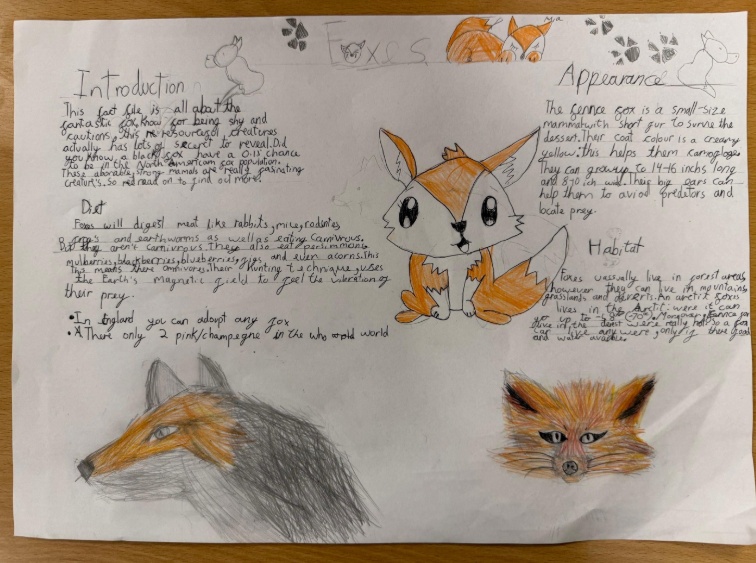 Foxes
Mia
Introduction
This fact file is all about the
fantastic fox, know for being shy and
cautious, this resourceful creatures
actually has lots of secert to reveal. Did
you know, a black fox have a 0.1% chance
to be in the North American fox population.
These aborable, strong mamals are really fasinating
creature's. So read on to find out more.
Diet
Foxes will digest meat like rabbits, mice, rodents,
frogs and earthworms as well as eating carnivrous.
But they aren't carnivrous. They also eat persimmons,
mulberries, blackberries, blueberries, figs and even acorns. This
means there omnivores. Their hunting technique, uses
the Earth's magnetic field to feel the vibration of
their prey.
•In England you can adopt any fox
•There only 2 pink/champegne in the who world
Appearance
The fennce fox is a small-size
mammal with short fur to survive the
dessert. Their coat colour is a creamy
yellow. this helps them camoflage.
They can grow up to 14-16 inchs long
and 8-10 ich wid. Their big ears can
help them to aviod predetors and
locate prey.
Habitat
Foxes ussually live in forest areas
however they can live in mountains,
grasslands and deserts. An arctic foxes
lives in the Arctic were it can
go up to (-70°c). Moreover, fennce fox
live in the desert were really hot so a fox
can live any were, only if there food
and water avaible.